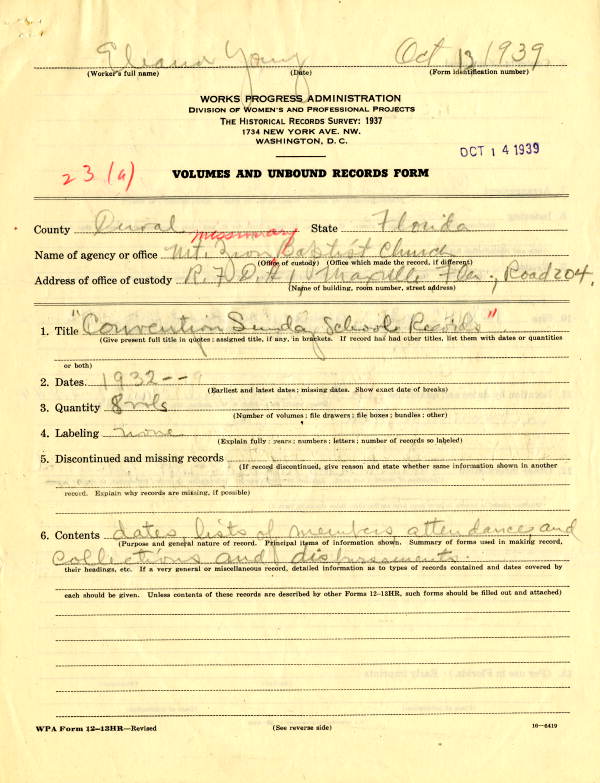 Eleanor Young Oct 13, 1939
(Worker's full name) (Date) (Form identification number)
WORKS PROGRESS ADMINISTRATION
DIVISION OF WOMEN'S AND PROFESSIONAL PROJECTS
THE HISTORICAL RECORDS SURVEY: 1937
1734 NEW YORK AVE. NW.
WASHINGTON, D. C.
OCT 14 1939
23 (a)
VOLUMES AND UNBOUND RECORDS FORM
County Duval State Florida
missionary
Name of agency or office Mt. Zion Baptist Church
(Office of custody) (Office which made the record, if different)
Address of office of custody R. F. D. #1 Maxville Fla., Road 204.
(Name of building, room number, street address)
1. Title "Convention Sunday Schools Records"
(Give present full title in quotes; assigned title, if any, in brackets. If record has had other titles, list them with dates or quantities
or both)
2. Dates. 1932--
(Earliest and latest dates; missing dates. Show exact date of breaks)
3. Quantity 8 vols
(Number of volumes; file drawers; file boxes; bundles; other)
4. Labeling none
(Explain fully: years; numbers; letters; number of records so labeled)
5. Discontinued and missing records
(If record discontinued, give reason and state whether same information shown in another
record. Explain why records are missing, if possible)
6. Contents dates lists of members attendances and
(Purpose and general nature of record. Principal items of information shown. Summary of forms used in making record,
collections and disbursements.
their headings, etc. If a very general or miscellaneous record, detailed information as to types of records contained and dates covered by
each should be given. Unless contents of these records are described by other Forms 12-13HR, such forms should be filled out and attached)
WPA Form 12-13HR—Revised (See reverse side) 16-6419